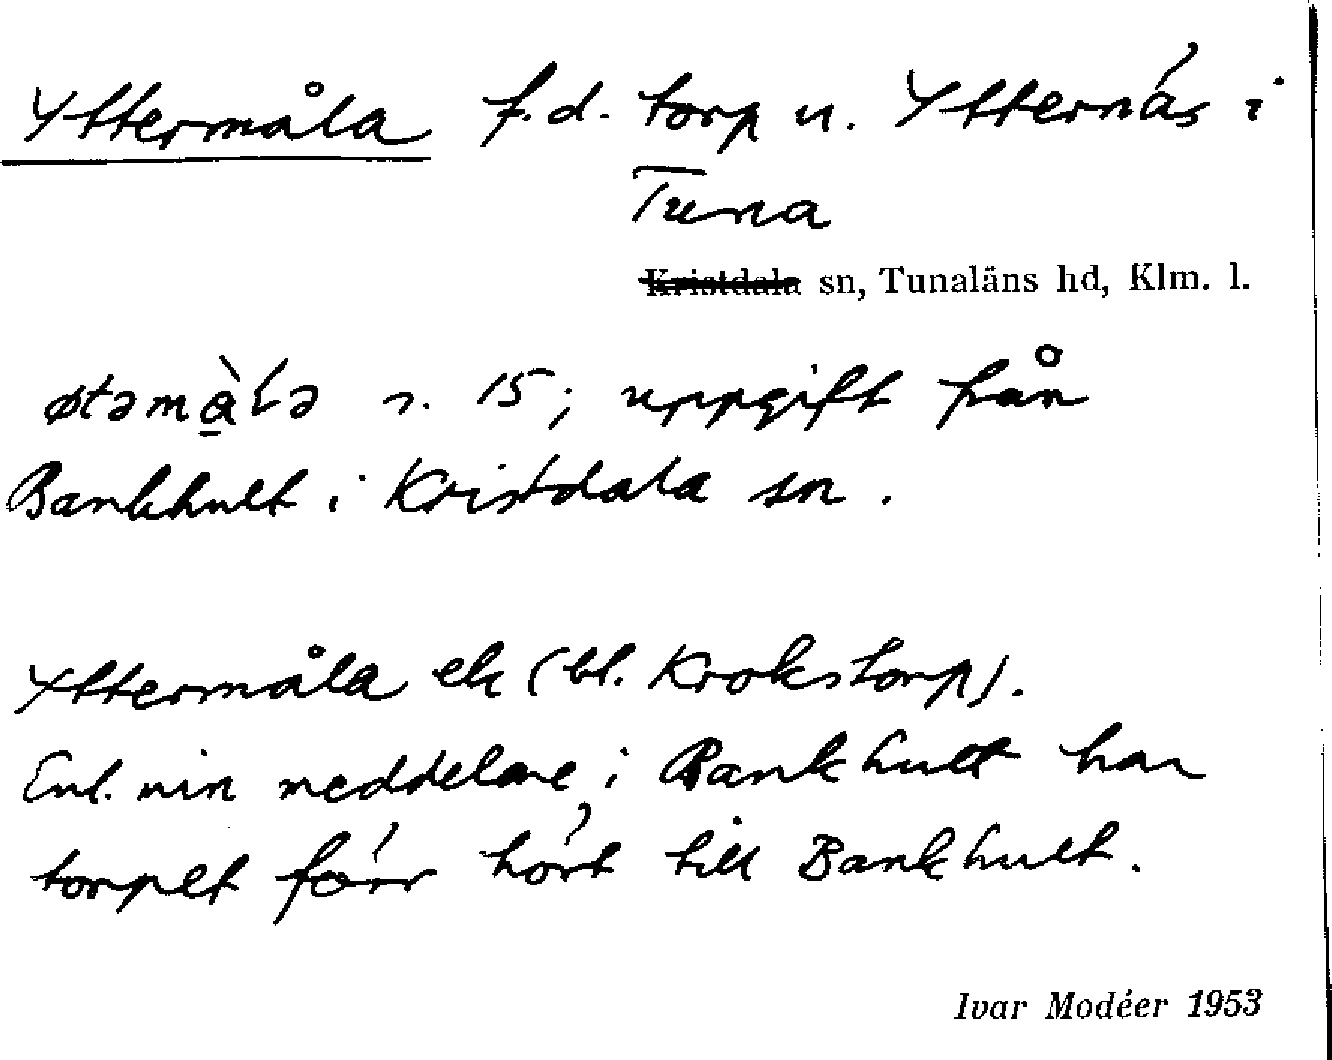 Yttermåla f.d. torp u. Ytternäs i
Tuna
Kristdala sn, Tunaläns hd, Klm. l.
øtəmà̱ɫə n. 15; uppgift från
Bankhult i Kristdala sn.
Yttermåla ek (bl. Krokstorp).
Enl. min meddelare i Bankhult har
torpet förr hört till Bankhult.
Ivar Modéer 1953